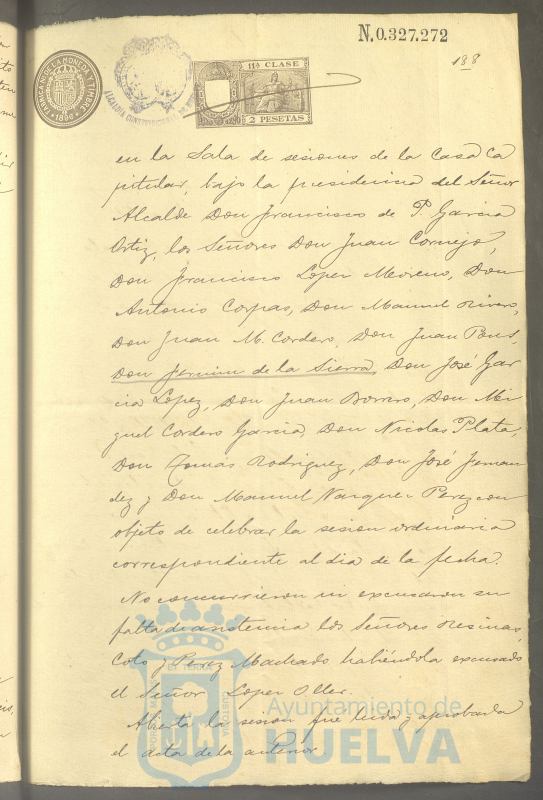 N.0.327.272
188
FABRICA NAL DE LA MONEDA Y TIMBRE
1896
ALCALDIA CONSTITUCIONAL
11ª CLASE
2 PESETAS
en la Sala de sesiones de la Casa Ca
pitular, bajo la presidencia del Señor
Alcalde Don Francisco de P. Garcia
Ortiz, los Señores Don Juan Cornejo,
Don Francisco Lopez Moreno, Don
Antonio Corpas, Don Manuel Rivero,
Don Juan M. Cordero, Don Juan Pons,
Don Fermin de la Sierra, Don José Gar
cia Lopez, Don Juan Borrero, Don Mi
guel Cordero Garcia, Don Nicolas Plata,
Don Tomás Rodriguez, Don José Fernan
dez y Don Manuel Vazquez Perez con
objeto de celebrar la sesion ordinaria
correspondiente al dia de la fecha.
No concurrieron ni excusaron su
falta de asistencia los Señores Resinas,
Coto y Perez Machado habiéndola excusado
el Señor Lopez Oller.
Abierta la sesion fué leida y aprobada
el acta de la anterior
Ayuntamiento de
HUELVA